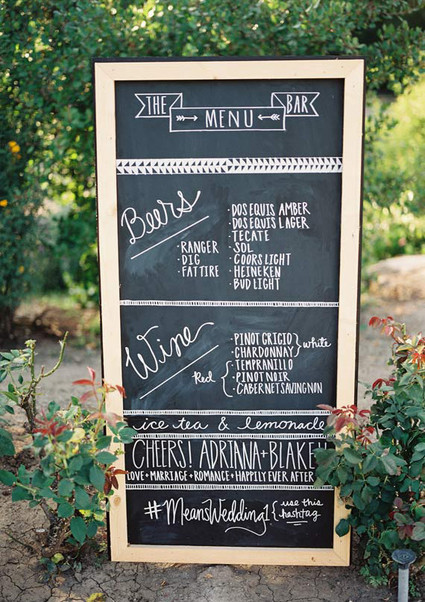 THE MENU BAR
Beers
· DOS EQUIS AMBER
· DOS EQUIS LAGER
· TECATE
· RANGER · SOL
· DIG · COORS LIGHT
· FAT TIRE · HEINEKEN
· BUD LIGHT
Wine
· PINOT GRIGIO
· CHARDONNAY } white
Red { · TEMPRANILLO
· PINOT NOIR
· CABERNET SAUVIGNON
ice tea & lemonade
CHEERS! ADRIANA + BLAKE!
LOVE + MARRIAGE + ROMANCE + HAPPILY EVER AFTER
#MeansWedding1 { use this
hashtag }